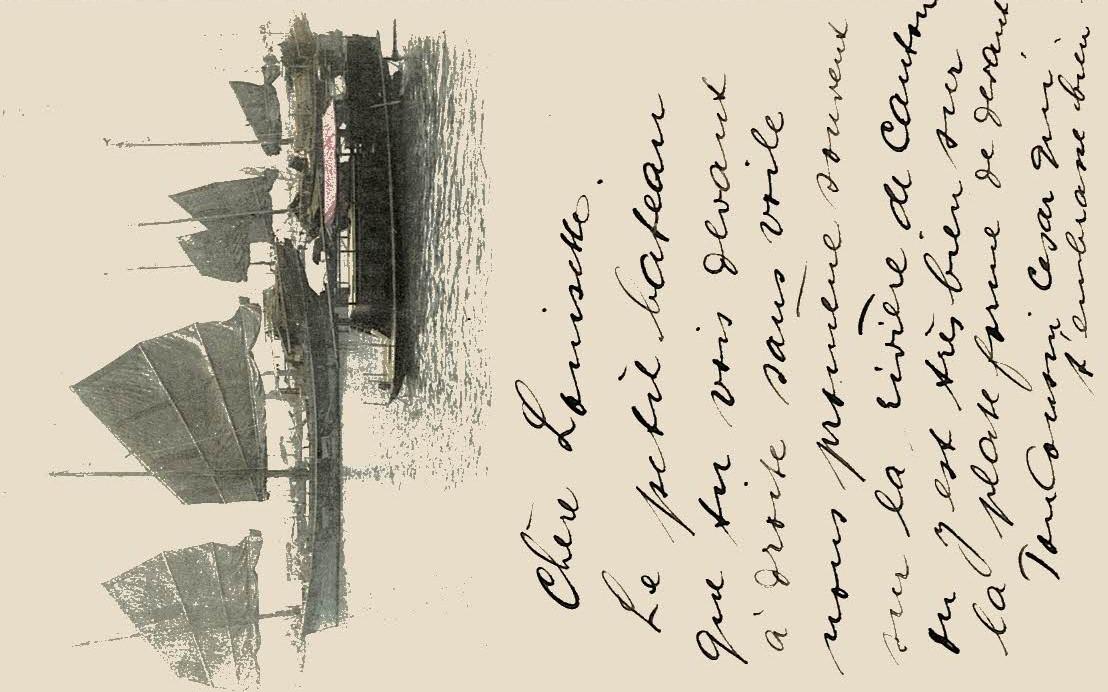 Chère Louisette.
Le petit bateau
que tu vois devant
à droite sans voile
nous promène souvent
sur la rivière de Canton
on y est très bien sur
la plate forme de devant
Ton Cousin Cesar qui
t'embrasse bien